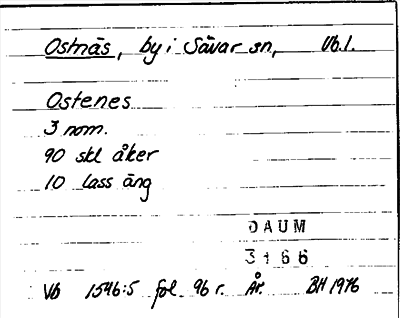 Ostnäs, by i Sävar sn, Vb.l.
Ostenes
3 nom.
90 skl åker
10 lass äng
DAUM
3166
Vb 1546:5 fol 96 r. År. BH 1976